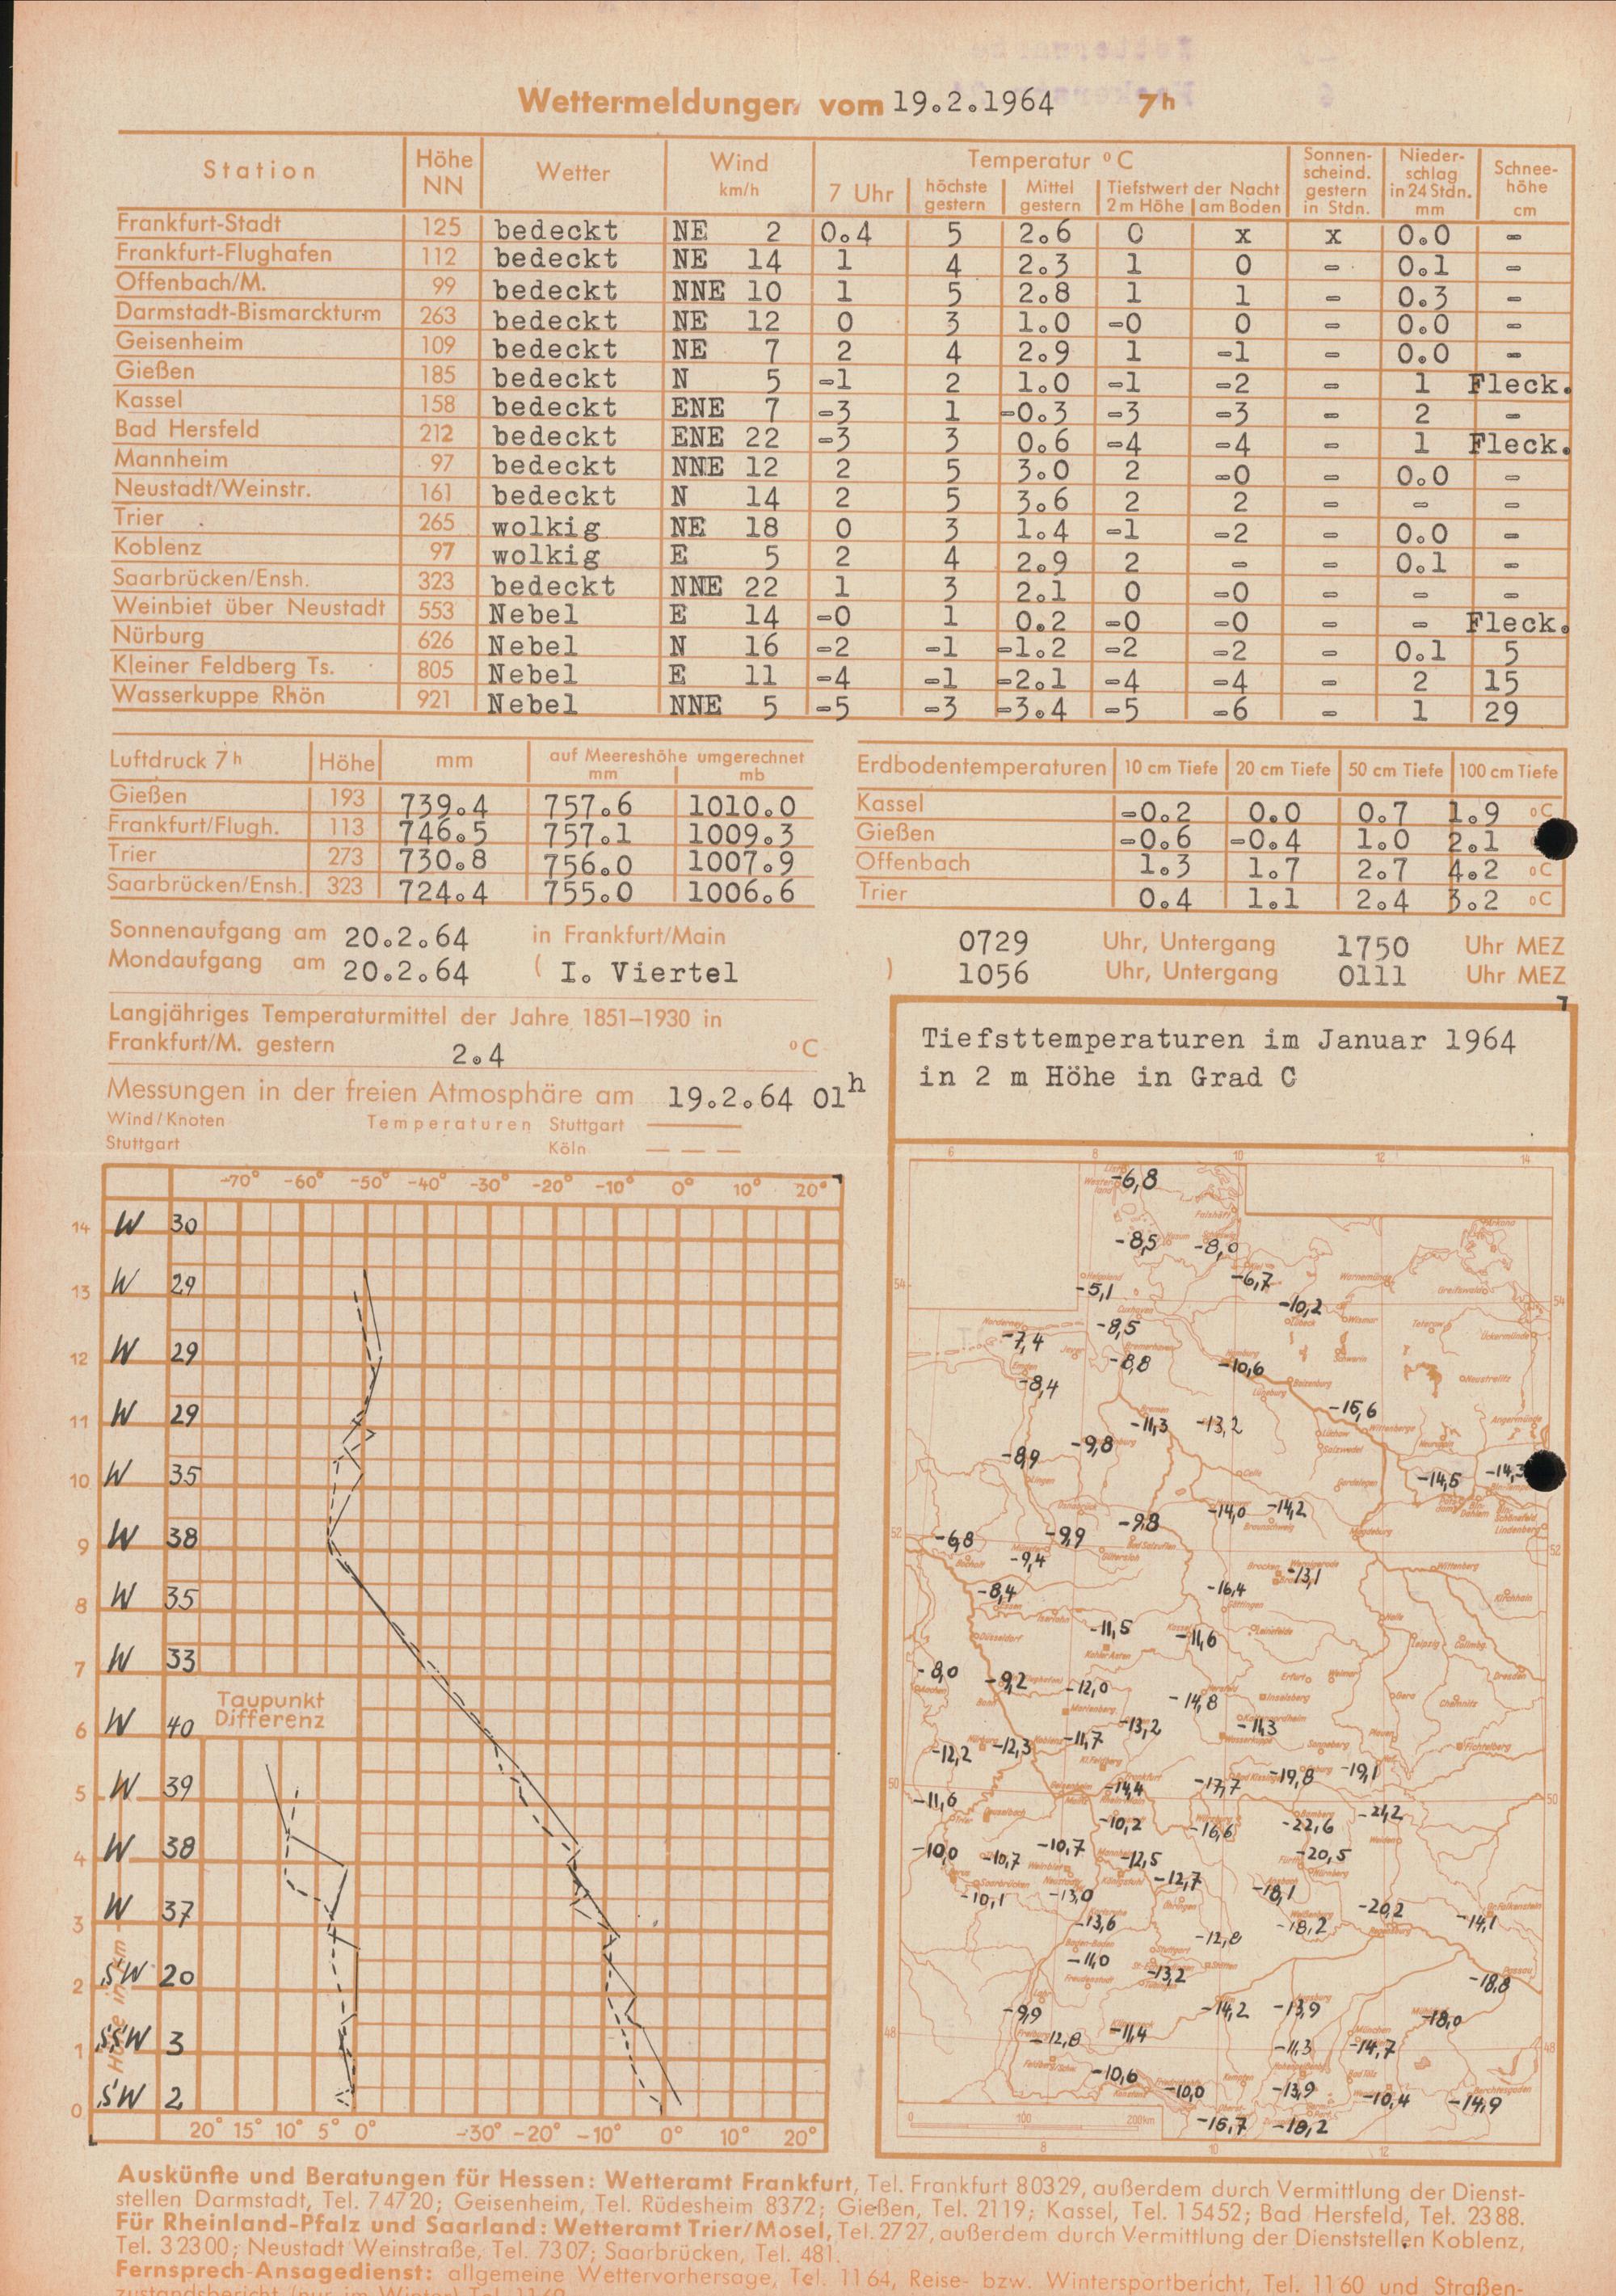 Wettermeldungen vom 19.2.1964 7h
Station Höhe NN Wetter Wind km/h Temperatur °C Sonnen-scheind. gestern in Stdn. Nieder-schlag in 24 Stdn. mm Schnee-höhe cm
7 Uhr höchste gestern Mittel gestern Tiefstwert der Nacht 2m Höhe am Boden
Frankfurt-Stadt 125 bedeckt NE 2 0.4 5 2.6 0 x x 0.0 -
Frankfurt-Flughafen 112 bedeckt NE 14 1 4 2.3 1 0 - 0.1 -
Offenbach/M. 99 bedeckt NNE 10 1 5 2.8 1 1 - 0.3 -
Darmstadt-Bismarckturm 263 bedeckt NE 12 0 3 1.0 -0 0 - 0.0 -
Geisenheim 109 bedeckt NE 7 2 4 2.9 1 -1 - 0.0 -
Gießen 185 bedeckt N 5 -1 2 1.0 -1 -2 - 1 Fleck.
Kassel 158 bedeckt ENE 7 -3 1 -0.3 -3 -3 - 2 -
Bad Hersfeld 212 bedeckt ENE 22 -3 3 0.6 -4 -4 - 1 Fleck.
Mannheim 97 bedeckt NNE 12 2 5 3.0 2 -0 - 0.0 -
Neustadt/Weinstr. 161 bedeckt N 14 2 5 3.6 2 2 - - -
Trier 265 wolkig NE 18 0 3 1.4 -1 -2 - 0.0 -
Koblenz 97 wolkig E 5 2 4 2.9 2 - - 0.1 -
Saarbrücken/Ensh. 323 bedeckt NNE 22 1 3 2.1 0 -0 - - -
Weinbiet über Neustadt 553 Nebel E 14 -0 1 0.2 -0 -0 - - Fleck.
Nürburg 626 Nebel N 16 -2 -1 -1.2 -2 -2 - 0.1 5
Kleiner Feldberg Ts. 805 Nebel E 11 -4 -1 -2.1 -4 -4 - 2 15
Wasserkuppe Rhön 921 Nebel NNE 5 -5 -3 -3.4 -5 -6 - 1 29
Luftdruck 7h Höhe mm auf Meereshöhe umgerechnet mm mb
Gießen 193 739.4 757.6 1010.0
Frankfurt/Flugh. 113 746.5 757.1 1009.3
Trier 273 730.8 756.0 1007.9
Saarbrücken/Ensh. 323 724.4 755.0 1006.6
Erdbodentemperaturen 10 cm Tiefe 20 cm Tiefe 50 cm Tiefe 100 cm Tiefe
Kassel -0.2 0.0 0.7 1.9 °C
Gießen -0.6 -0.4 1.0 2.1
Offenbach 1.3 1.7 2.7 4.2 °C
Trier 0.4 1.1 2.4 3.2 °C
Sonnenaufgang am 20.2.64 in Frankfurt/Main 0729 Uhr, Untergang 1750 Uhr MEZ
Mondaufgang am 20.2.64 ( I. Viertel ) 1056 Uhr, Untergang 0111 Uhr MEZ
Langjähriges Temperaturmittel der Jahre 1851–1930 in
Frankfurt/M. gestern 2.4 °C
Messungen in der freien Atmosphäre am 19.2.64 01h
Wind/Knoten Temperaturen Stuttgart
Stuttgart Köln
-70° -60° -50° -40° -30° -20° -10° 0° 10° 20°
14 W 30
13 W 29
12 W 29
11 W 29
10 W 35
9 W 38
8 W 35
7 W 33
Taupunkt
Differenz
6 W 40
5 W 39
4 W 38
3 W 37
2 SW 20
1 SSW 3
0 SW 2
Höhe in km
20° 15° 10° 5° 0° -30° -20° -10° 0° 10° 20°
Tiefsttemperaturen im Januar 1964
in 2 m Höhe in Grad C
6 8 10 12 14
-6,8
-8,5 -8,0
-5,1 -6,7
-10,2
-7,4 -8,5
-8,8 -10,6
-8,4
-15,6
-11,3 -13,2
-9,8
-8,9
-14,5 -14,3
-14,0 -14,2
-9,8
-6,8 -9,9
-9,4
-13,1
-8,4 -16,4
-11,5 -11,6
-8,0 -9,2 -12,0
-14,8
-13,2 -11,3
-12,2 -12,3 -11,7
-14,4 -17,7 -19,8 -19,1
-11,6
-10,2 -16,6 -22,6 -21,2
-10,0 -10,7 -10,7 -12,5 -20,5
-12,7
-10,1 -13,0 -18,1
-13,6 -18,2 -20,2 -14,1
-12,8
-11,0 -13,2
-18,8
-9,9 -14,2 -13,9 -18,0
-12,8 -11,4 -11,3 -14,7
-10,6 -10,0 -13,9 -10,4 -14,9
-15,7 -18,2
0 100 200km
8 10 12
Auskünfte und Beratungen für Hessen: Wetteramt Frankfurt, Tel. Frankfurt 80329, außerdem durch Vermittlung der Dienst-
stellen Darmstadt, Tel. 74720; Geisenheim, Tel. Rüdesheim 8372; Gießen, Tel. 2119; Kassel, Tel. 15452; Bad Hersfeld, Tel. 2388.
Für Rheinland-Pfalz und Saarland: Wetteramt Trier/Mosel, Tel. 2727, außerdem durch Vermittlung der Dienststellen Koblenz,
Tel. 32300; Neustadt Weinstraße, Tel. 7307; Saarbrücken, Tel. 481.
Fernsprech-Ansagedienst: allgemeine Wettervorhersage, Tel. 1164, Reise- bzw. Wintersportbericht, Tel. 1160 und Straßen-